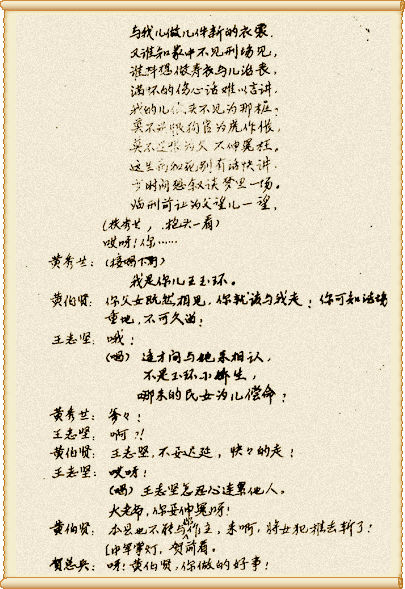 与我儿做几件新的衣裳.
又谁知家中不见刑场见,
谁料想做寿衣与儿治丧,
满怀的伤心话难以言讲.
我的儿低头不见为那桩?
莫不是恨狗官为虎作伥,
莫不是恨为父不伸冤枉.
这生离死别有话快讲.
少时间想叙谈梦里一场.
临刑前让为父望儿一望,
(扶秀兰,抬头一看)
哎呀!你……
黄秀兰:(接唱下句)
我是你儿王玉环。
黄伯贤:你父女既然相见,你就该与我走!你可知法场
重地,不可久留!
王志坚:哦!
(唱)这才间与她来相认,
不是玉环小娇生,
哪来的民女为儿偿命?
黄秀兰:爹々!
王志坚:啊?!
黄伯贤:王志坚,不要迟延,快々的走!
王志坚:哎呀!
(唱)王志坚怎忍心连累他人。
大老爷,你要伸冤呀!
黄伯贤:本县也不能与你作主,来啊,将女犯推去斩了!
[中军掌灯,贺前看。
贺总兵:呀!黄伯贤,你做的好事!